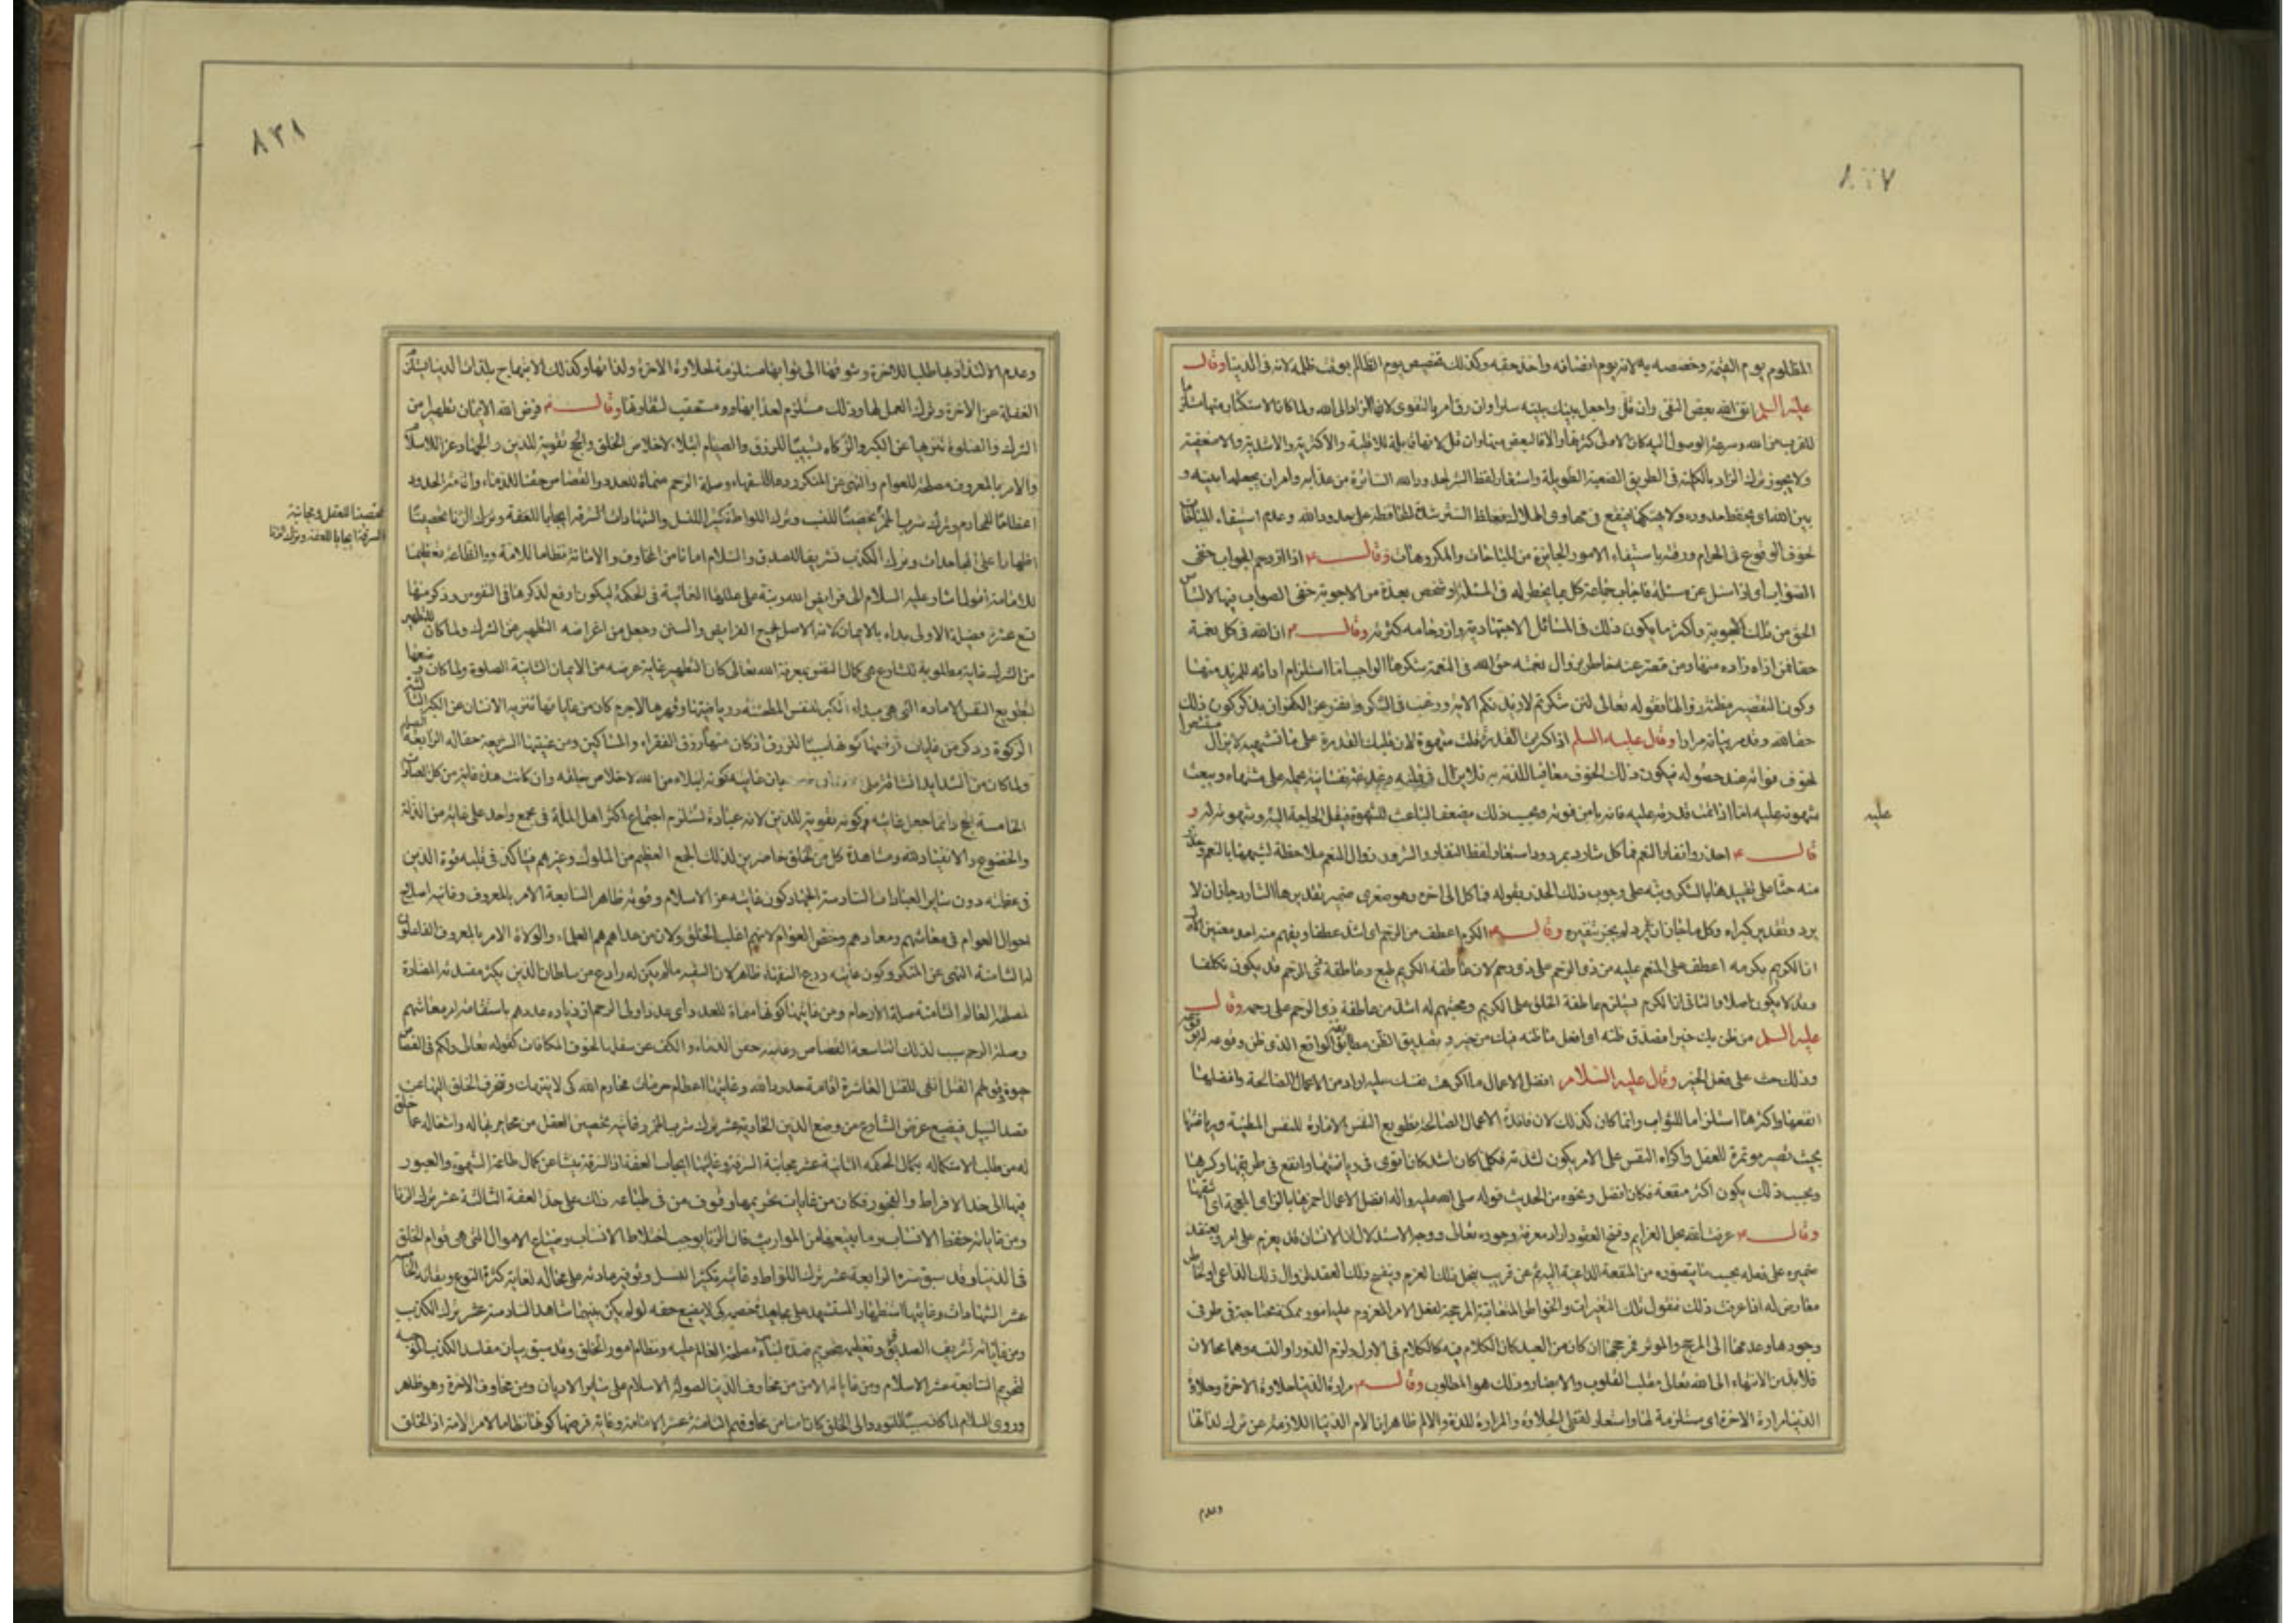 ٨٣٧
المظلوم يوم القيمة وخصصه به لانه يوم انصافه واخذ حقه وكذلك تخصيص يوم الظالم بوقت ظلمه لانه فى الدنيا وقال
عليه السلم اتق الله بعض التقى وان قل واجعل بينك وبينه سترا وان رق امر بالتقوى لانها الزاد الى الله ولما كان الاستكثار منها
للقرب من الله وسرعة الوصول اليه كان الاولى كثرتها والا فالبعض منها وان قل لانها قابلة للاقلية والاكثرية والاشدية والاضعفية
ولا يجوز ترك الزاد بالكلية فى الطريق الصعبة الطويلة واستعار لفظ الستر لحدود الله الساترة من عذابه وامر ان يجعلها بينه و
بين الله اى يحفظ حدوده ولا يهتكها فيقع فى مهاوى الهلاك فغاظ الستر شدة المحافظة على حدود الله وعدم استيفاء المباحات
خوف الوقوع فى الحرام ورقته باستيفاء الامور الجايزة من المباحات والمكروهات وقال ع اذا ازدحم الجواب خفى
الصواب اى اذا سئل عن مسئلة فاجاب جماعة كل بما يخطر له فى المسئلة او شخص بعدة من الاجوبة خفى الصواب فيها لالتباس
الحق من تلك الاجوبة واكثر ما يكون ذلك فى المسائل الاجتهادية وازدحامه كثرته وقال ع ان الله فى كل نعمة
حقا فمن اداه زاده منها ومن قصر عنه خاطر بزوال نعمته حق الله فى النعمة شكرها الواجب اما استلزام ادائه للمزيد منها
وكون التقصير مظنة زوالها فلقوله تعالى لئن شكرتم لازيدنكم الاية ورغب فى الشكر ونفر عن الكفران بذكر كون ذلك
حقا لله وقد مر بيانه مرارا وقال عليه السلم اذا كثرت المقدرة قلت الشهوة لان مليك القدرة على ما تشتهيه لا يزال مستشعرا
لخوف فواته عند حصوله فيكون ذلك الخوف معاقبا للذته به فلا يزال فى قلبه رغبة نفسانية يحمله على مشتهاه ويبعث
شهوته عليه اما اذا تمت قدرته عليه فانه يامن فوته وبحسب ذلك يضعف الباعث للشهوة فيقل الحاجة اليه وشهوته له و
عليه
قال ع احذروا نفار النعم فما كل شارد بمردود استعار لفظ النفار والشرود لزوال النعم ملاحظة لشبهها بالنعم وحذر
منه حثا على تقييدها بالشكر ونبه على وجوب ذلك الحذر بقوله فما كل الى اخره وهو صغرى ضمير تقديرها الشارد جاز ان لا
يرد وتقدير كبراه وكل ما جاز ان لا يرد لم يجز تنفيره وقال ع الكرم اعطف من الرحم اى اشد عطفا ويفهم منه احد معنيين الاول
ان الكريم بكرمه اعطف على المنعم عليه من ذوالرحم على ذى رحم لان عاطفة الكريم طبع وعاطفة ذى الرحم قد يكون تكلفا
وقد لا يكون اصلا والثانى ان الكرم يستلزم عاطفة الخلق على الكريم ومحبتهم له اشد من عاطفة ذى الرحم على رحمه وقال
عليه السلم من ظن بك خيرا فصدق ظنه اى افعل ما ظنه فيك من خير وتصديق الظن مطابقة الواقع الذى ظن وقوعه
وذلك حث على فعل الخير وقال عليه السلام افضل الاعمال ما اكرهت نفسك عليه اراد من الاعمال الصالحة وافضلها
انفعها واكثرها استلزاما للثواب وانما كان كذلك لان فائدة الاعمال الصالحة تطويع النفس الامارة للنفس المطمئنة ورياضتها
بحيث تصير موتمرة للعقل واكراه النفس على الامر يكون لشدته فكلما كان اشد كان اقوى فى رياضتها وانفع فى طريقتها وكسرها
وبحسب ذلك يكون اكثر منفعة فكان افضل ونحوه من الحديث قوله صلى الله عليه واله افضل الاعمال احمزها بالزاى المعجمة اى اشقها
وقال ع عرفت الله بحل العزايم وفسخ العقود اراد معرفة وجوده تعالى ووجه الاستدلال ان الانسان قد يعزم على امر ويعقد
ضميره على فعله بحسب ما يتصوره من المنفعة الداعية اليه ثم عن قريب ينحل ذلك العزم وينفسخ ذلك العقد لزوال ذلك الداعى او لخاطر
معارض له اذا عرفت ذلك فنقول تلك التغيرات والخواطر المتعاقبة المرجحة لفعل الامر المعزوم عليه امور ممكنة محتاجة فى طرفى
وجودها وعدمها الى المرجح والموثر فمرجحها ان كان من العبد كان الكلام فيه كالكلام فى الاول ولزم الدور او التسه وهما محالان
فلا بد من الانتهاء الى الله تعالى مقلب القلوب والابصار وذلك هو المطلوب وقال ع مرارة الدنيا حلاوة الاخرة وحلاوة
الدنيا مرارة الاخرة اى مستلزمة لها واستعار لفظى الحلاوة والمرارة للذة والالم ظاهر ان الام الدنيا اللازمة عن ترك لذاتها
وعدم
٨٣٨
وعدم الالتذاذ بها طلبا للاخرة وشوقها الى ثوابها مستلزمة لحلاوة الاخرة ولذاتها وكذلك الابتهاج بلذات الدنيا يستلزم
الغفلة عن الاخرة وترك العمل لها وذلك مستلزم لعذابها ومستعقب لشقاوتها وقال ع فرض الله الايمان تطهيرا من
الشرك والصلوة تنزيها عن الكبر والزكاه تسبيبا للرزق والصيام ابتلاء لاخلاص الخلق والحج تقوية للدين والجهاد عزا للاسلام
والامر بالمعروف مصلحة للعوام والنهى عن المنكر ردعا للسفهاء وصلة الرحم منماة للعدد والقصاص حقنا للدماء واقامة الحدود
اعظاما للمحارم وترك شرب الخمر تحصينا للنسب وترك اللواطة تكثيرا للنسل والشهادات السرقة ايجابا للعفة وترك الزنا تحصينا
تحصينا للعقل ومجانبة
السرقة ايجابا للعفة وترك الزنا
اظهارا على المجاحدات وترك الكذب تشريفا للصدق والسلام امانا من المخاوف والامانة نظاما للامة والطاعة تعظيما
للامامة اقول اشار عليه السلام الى فرايض الله ونبه على عللها الغائية فى الحكمة ليكون اوقع لذكرها فى النفوس وذكر منها
تسع عشرة فضيلة الاولى بداء بالايمان لانه الاصل لجميع الفرايض والسنن وجعل من اغراضه التطهير عن الشرك ولما كان التطهير
من الشرك غاية مطلوبة للشارع هى كمال النفوس بمعرفة الله تعالى كان التطهير غاية عرضه من الايمان الثانية الصلوة ولما كان وضعها
لتطويع النفس الامارة التى هى مبدء الكبر للنفس المطمئنة ورياضتها وقهرها لاجرم كان من غاياتها تنزيه الانسان عن الكبر الثالثة
الزكوة وذكر من غايات فرضها كونها سببا للرزق اذ كان منها رزق الفقراء والمساكين ومن عينتها الشريعة حقا له الرابعة الصيام
ولما كان من الشدايد الشاقة على بيان غايته كونه ابتلاء من الله لاخلاص خلقه وان كانت هذه غاية من كل العبادات
الخامسة الحج وانما جعل غايته كونه تقوية للدين لانه عبادة تستلزم اجتماع اكثر اهل الملة فى مجمع واحد على غاية من الذلة
والخضوع والانقياد لله ومشاهدة كل من الخلق حاضرين لذلك الجمع العظيم من الملوك وغيرهم فيتاكد فى قلبه قوة الدين
فى عظمته دون ساير العبادات السادسة الجهاد كون غايته عز الاسلام وقوته ظاهر السابعة الامر بالمعروف وغايته اصلاح
احوال العوام فى معاشهم ومعادهم وخص العوام لانهم اغلب الخلق ولان من عداهم هم العلماء والولاة الامر بالمعروف الفاعلون
له الثامنة النهى عن المنكر وكون غايته ردع السفهاء ظاهر لان السفيه مالم يكن له رادع من سلطان الدين يكثر مفسدته المضادة
لمصلحة العالم الثامنة صلة الارحام ومن غايتها كونها منماة للعدد اى عدد اولى الرحم اذ زيادة عددهم باستقامة امر معاشهم
وصلة الرحم سبب لذلك التاسعة القصاص وغايته حقن الدماء والكف عن سفكها لخوف المكافات كقوله تعالى ولكم فى القصاص
حيوة وقولهم القتل انفى للقتل العاشرة اقامة حدود الله وغايتها اعظام حرمات محارم الله كى لا ينتهك وتنحرف الخلق اليها عن
قصد السبيل فيضيع غرض الشارع من وضع الدين الحادية عشر ترك شرب الخمر وغايته تحصين العقل من مخامر يغتاله واشغاله عما خلق
له من طلب الاستكماله بكمال الحكمه الثانية عشر مجانبة السرقة وغايتها ايجاب العفة اذ السرقة ينشأ عن كمال طاعة الشهوة والعبور
فيها الى حد الافراط والفجور فكان من غايات تحريمها وقوف من فى طباعه ذلك على حد العفة الثالثة عشر ترك الزنا
ومن غاياته حفظ الانساب وما يتبعها من المواريث فان الزنا يوجب اختلاط الانساب وضياع الاموال التى هى قوام الخلق
فى الدنيا وقد سبق شره الرابعة عشر ترك اللواط وغايته تكثير النسل وتوفير مادته على محاله لغاية كثرة النوع وبقائه الخامسة
عشر الشهادات وغايتها استظهار المستشهد على مجاحدة خصمه كى لا يضيع حقه لو لم يكن بينهما شاهد السادسة عشر ترك الكذب
ومن غاياته تشريف الصدق وتعظيمه بتحريم ضده لبناء مصلحة العالم عليه ونظام امور الخلق وقد سبق بيان مفاسد الكذب
لتحريم السابعة عشر الاسلام ومن غاياته الامن من مخاوف الدنيا لصولة الاسلام على ساير الاديان ومن مخاوف الاخرة وهو ظاهر
وروى السلام لما كان سببا للتودد الى الخلق كان امانا من مخاوفهم الثامنة عشر الامامة وغاية فرضها كونها نظاما لامر الامة اذ الخلق